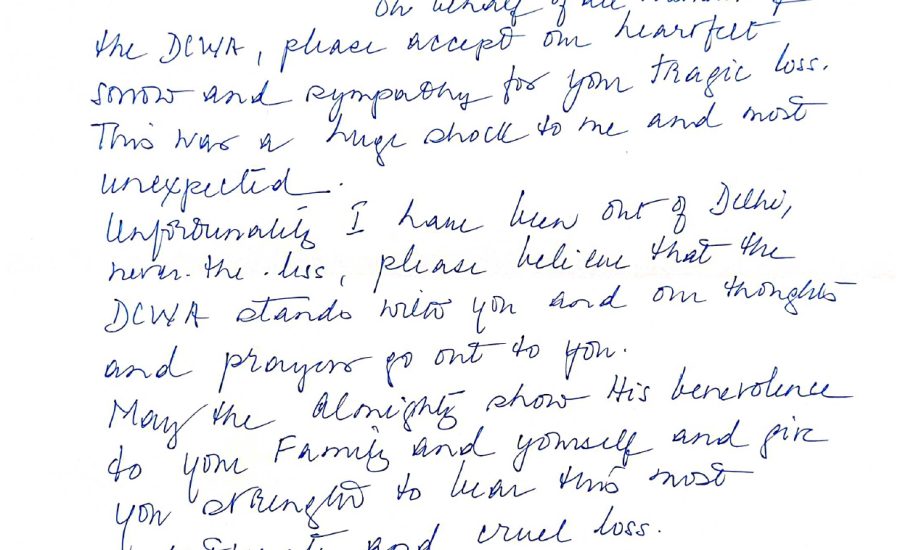 On behalf of
the DCWA, please accept our heartfelt
sorrow and sympathy for your tragic loss.
This was a huge shock to me and most
unexpected.
Unfortunately I have been out of Delhi,
never-the-less, please believe that the
DCWA stands with you and our thoughts
and prayers go out to you.
May the Almighty show His benevolence
to your Family and yourself and give
you strenght to bear this most
and cruel loss.